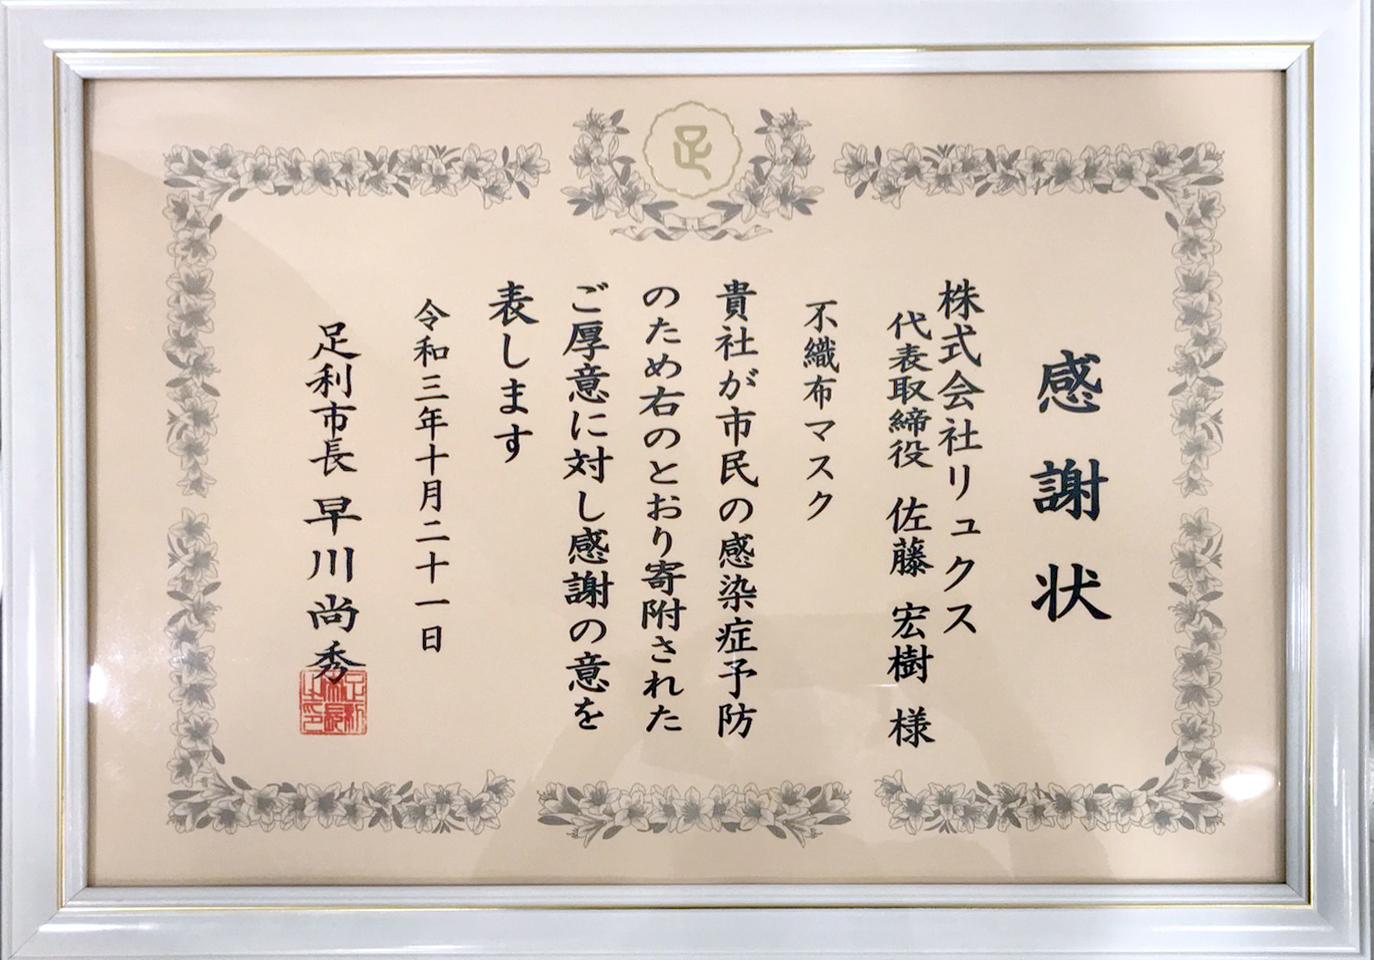 足
感謝状
株式会社リュクス
代表取締役 佐藤 宏樹 様
不織布マスク
貴社が市民の感染症予防
のため右のとおり寄附された
ご厚意に対し感謝の意を
表します
令和三年十月二十一日
足利市長 早川尚秀